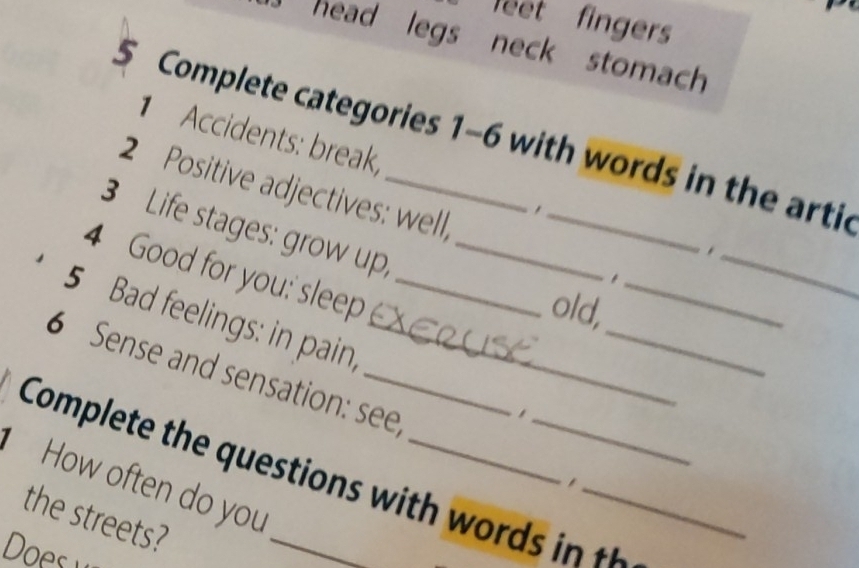 feet fingers
head legs neck stomach
5 Complete categories 1–6 with words in the artic
1 Accidents: break, , ,
2 Positive adjectives: well, ,
3 Life stages: grow up, old,
4 Good for you: sleep EXERCISE
5 Bad feelings: in pain, ,
6 Sense and sensation: see, ,
Complete the questions with words in the
1 How often do you
the streets?
Does